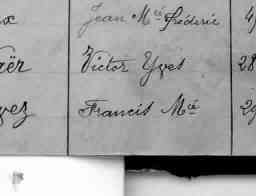 x Jean Mie Fréderic 4
aër Victor Yves 28
vez Francis Mie 29